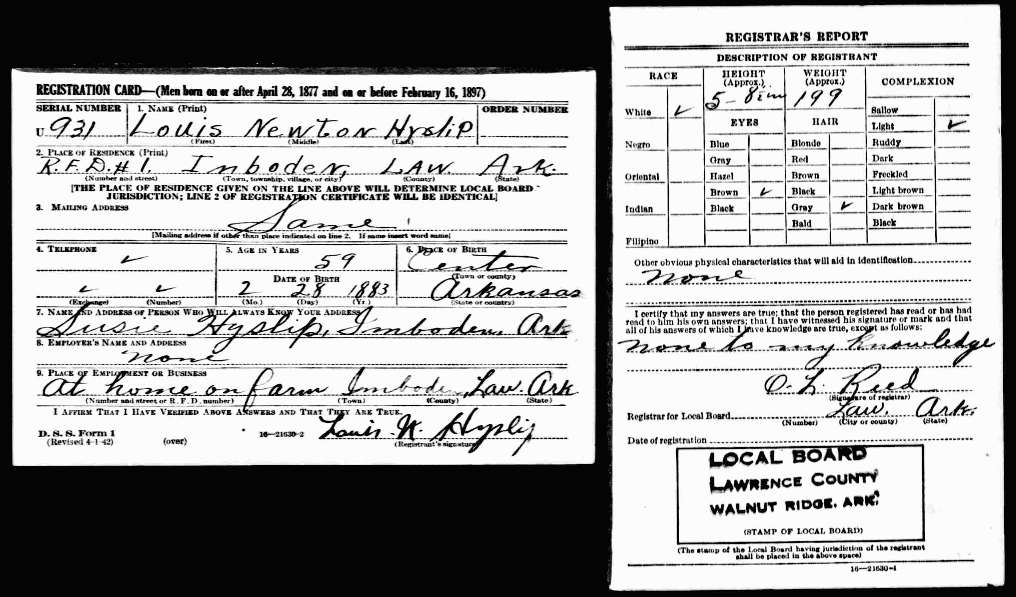 REGISTRATION CARD—(Men born on or after April 28, 1877 and on or before February 16, 1897)
SERIAL NUMBER 1. NAME (Print) ORDER NUMBER
U 931 Louis Newton Hyslip
(First) (Middle) (Last)
2. PLACE OF RESIDENCE (Print)
R.F.D. # 1. Imboden, LAW. Ark.
(Number and street) (Town, township, village, or city) (County) (State)
[THE PLACE OF RESIDENCE GIVEN ON THE LINE ABOVE WILL DETERMINE LOCAL BOARD
JURISDICTION; LINE 2 OF REGISTRATION CERTIFICATE WILL BE IDENTICAL]
3. MAILING ADDRESS
Same
[Mailing address if other than place indicated on line 2. If same insert word same]
4. TELEPHONE 5. AGE IN YEARS 6. PLACE OF BIRTH
59 Center
DATE OF BIRTH (Town or county)
2 28 1883 Arkansas
(Exchange) (Number) (Mo.) (Day) (Yr.) (State or country)
7. NAME AND ADDRESS OF PERSON WHO WILL ALWAYS KNOW YOUR ADDRESS
Susie Hyslip, Imboden, Ark
8. EMPLOYER'S NAME AND ADDRESS
none
9. PLACE OF EMPLOYMENT OR BUSINESS
At home on farm Imbode, Law. Ark
(Number and street or R. F. D. number) (Town) (County) (State)
I AFFIRM THAT I HAVE VERIFIED ABOVE ANSWERS AND THAT THEY ARE TRUE.
D. S. S. Form 1
(Revised 4-1-42) (over) 16—21630-2 Louis N. Hyslip
(Registrant's signature)
REGISTRAR'S REPORT
DESCRIPTION OF REGISTRANT
RACE HEIGHT (Approx.) WEIGHT (Approx.) COMPLEXION
5-8in 199
White Sallow
EYES HAIR Light
Negro Blue Blonde Ruddy
Gray Red Dark
Oriental Hazel Brown Freckled
Brown Black Light brown
Indian Black Gray Dark brown
Bald Black
Filipino
Other obvious physical characteristics that will aid in identification
none
I certify that my answers are true; that the person registered has read or has had
read to him his own answers; that I have witnessed his signature or mark and that
all of his answers of which I have knowledge are true, except as follows:
none to my knowledge
O. L. Reed
(Signature of registrar)
Registrar for Local Board Law. Ark.
(Number) (City or county) (State)
Date of registration
LOCAL BOARD
LAWRENCE COUNTY
WALNUT RIDGE, ARK.
(STAMP OF LOCAL BOARD)
(The stamp of the Local Board having jurisdiction of the registrant
shall be placed in the above space)
16—21630-1